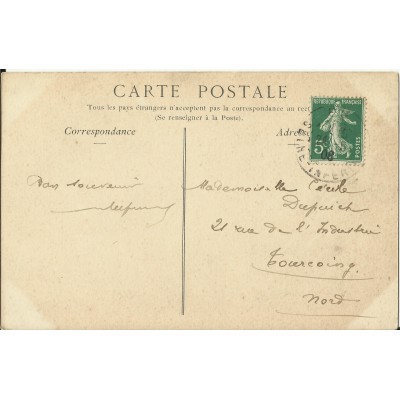 CARTE POSTALE
Tous les pays étrangers n'acceptent pas la correspondance au
(Se renseigner à la Poste).
Correspondance
RÉPUBLIQUE FRANÇAISE
5
souvenir
Mademoiselle Cécile
Dupuich
21 rue de l'Industrie
Tourcoing
Nord